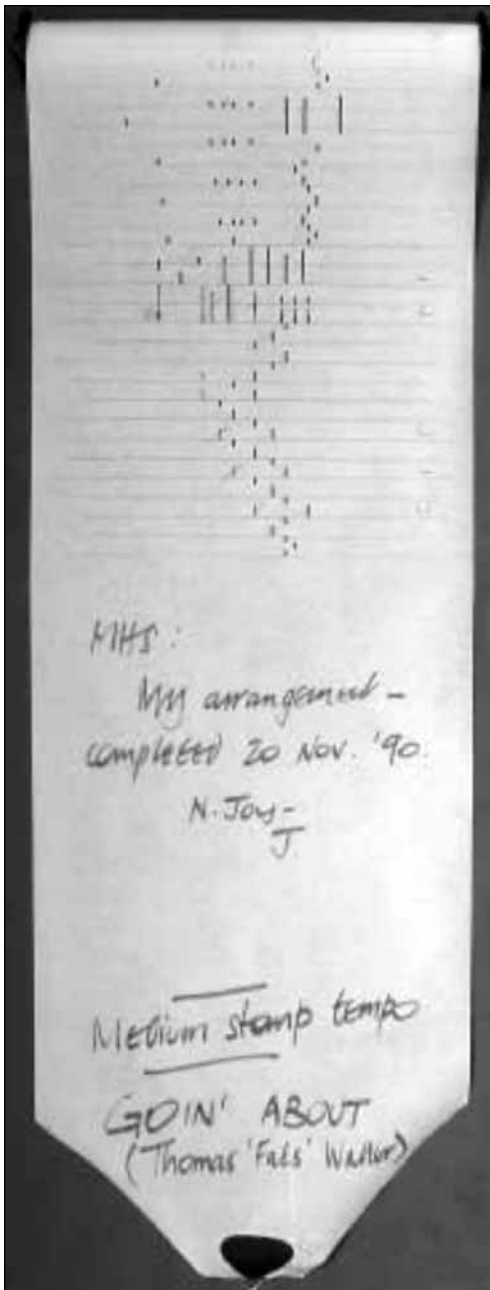 MHS:
My arrangement -
completed 20 Nov. '90.
N. Joy -
J.
Medium stomp tempo
GOIN' ABOUT
(Thomas 'Fats' Waller)